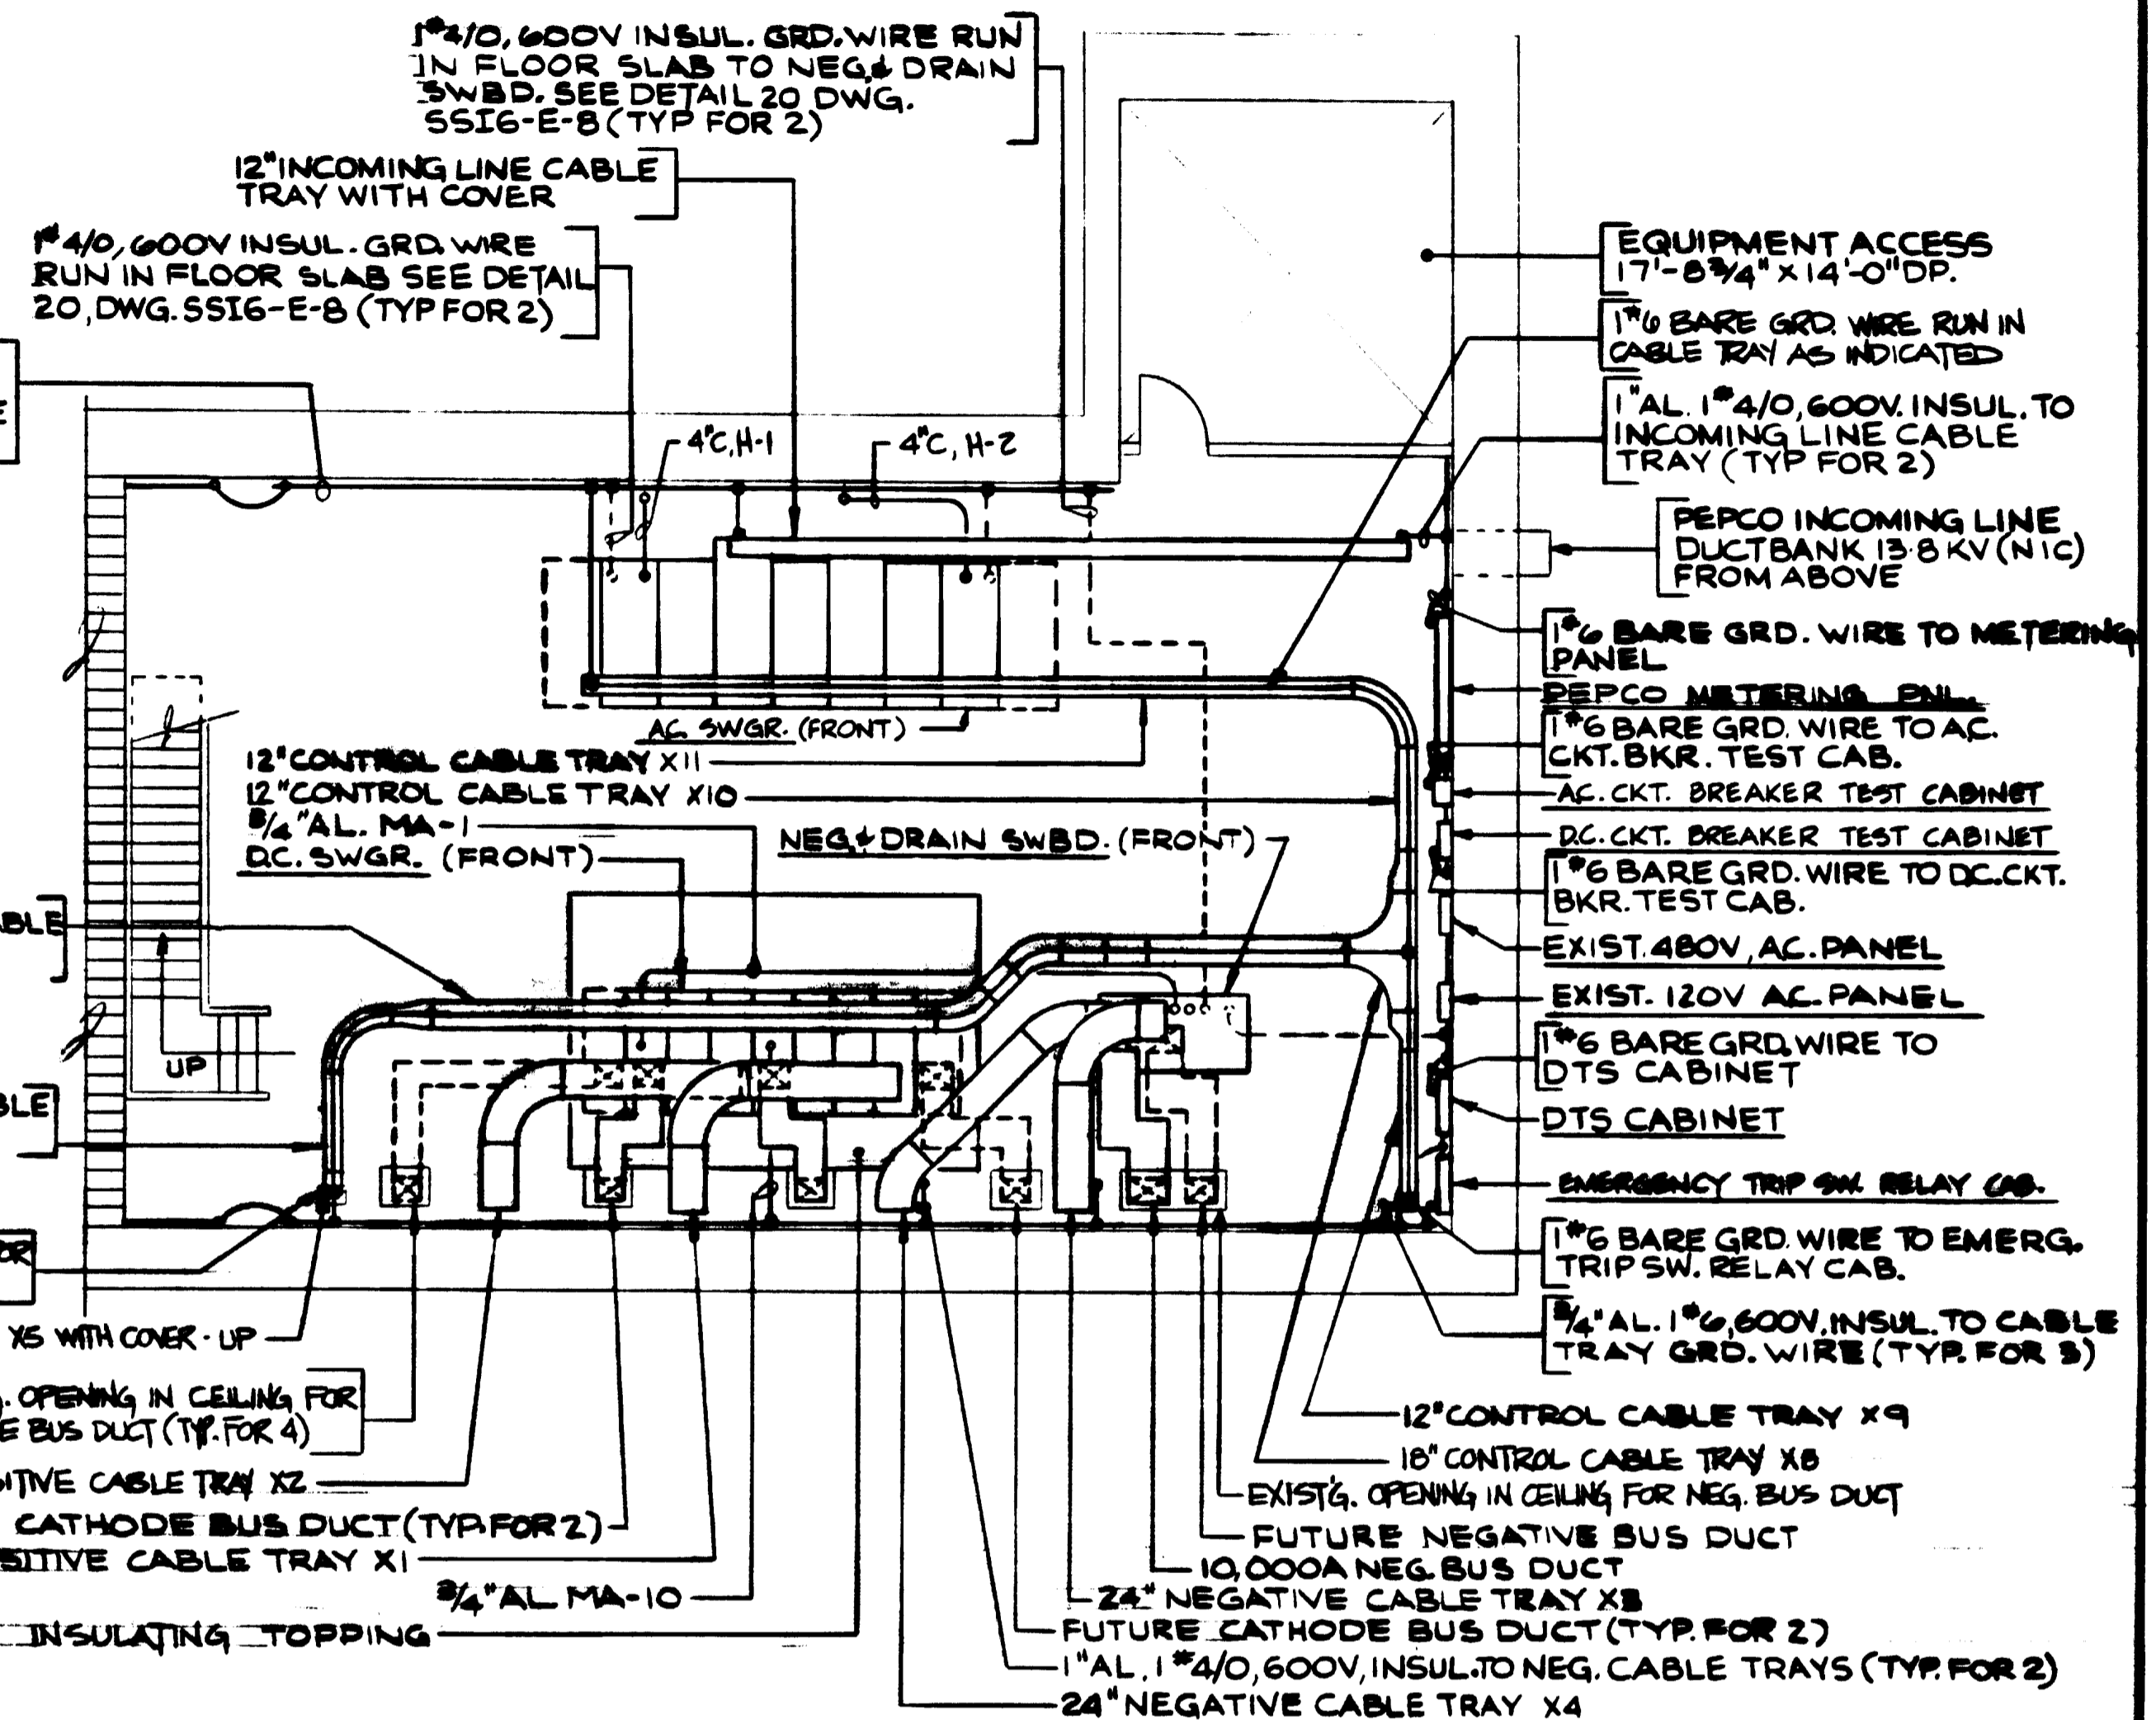 1#4/0, 600V INSUL. GRD. WIRE RUN
IN FLOOR SLAB TO NEG. & DRAIN
SWBD. SEE DETAIL 20 DWG.
SSI6-E-8 (TYP FOR 2)
12" INCOMING LINE CABLE
TRAY WITH COVER
1#4/0, 600V INSUL. GRD. WIRE
RUN IN FLOOR SLAB SEE DETAIL
20, DWG. SSI6-E-8 (TYP FOR 2)
E
4"C, H-1
4"C, H-2
EQUIPMENT ACCESS
17'-8 3/4" X 14'-0" DP.
1#6 BARE GRD. WIRE RUN IN
CABLE TRAY AS INDICATED
1" AL. 1#4/0, 600V. INSUL. TO
INCOMING LINE CABLE
TRAY (TYP FOR 2)
PEPCO INCOMING LINE
DUCTBANK 13.8 KV (NIC)
FROM ABOVE
1#6 BARE GRD. WIRE TO METERING
PANEL
PEPCO METERING PNL.
1#6 BARE GRD. WIRE TO A.C.
CKT. BKR. TEST CAB.
A.C. CKT. BREAKER TEST CABINET
D.C. CKT. BREAKER TEST CABINET
1#6 BARE GRD. WIRE TO D.C. CKT.
BKR. TEST CAB.
EXIST. 480V, AC. PANEL
EXIST. 120V AC. PANEL
1#6 BARE GRD. WIRE TO
DTS CABINET
DTS CABINET
EMERGENCY TRIP SW. RELAY CAB.
1#6 BARE GRD. WIRE TO EMERG.
TRIP SW. RELAY CAB.
3/4" AL. 1#6, 600V. INSUL. TO CABLE
TRAY GRD. WIRE (TYP. FOR 3)
AC. SWGR. (FRONT)
12" CONTROL CABLE TRAY X11
12" CONTROL CABLE TRAY X10
3/4" AL. MA-1
D.C. SWGR. (FRONT)
NEG. & DRAIN SWBD. (FRONT)
ABLE
UP
BLE
OR
X5 WITH COVER - UP
. OPENING IN CEILING FOR
E BUS DUCT (TYP. FOR 4)
SITIVE CABLE TRAY X2
CATHODE BUS DUCT (TYP. FOR 2)
SITIVE CABLE TRAY X1
3/4" AL MA-10
INSULATING TOPPING
12" CONTROL CABLE TRAY X9
18" CONTROL CABLE TRAY X8
EXIST'G. OPENING IN CEILING FOR NEG. BUS DUCT
FUTURE NEGATIVE BUS DUCT
10,000A NEG. BUS DUCT
24" NEGATIVE CABLE TRAY X3
FUTURE CATHODE BUS DUCT (TYP. FOR 2)
1" AL, 1#4/0, 600V, INSUL. TO NEG. CABLE TRAYS (TYP. FOR 2)
24" NEGATIVE CABLE TRAY X4